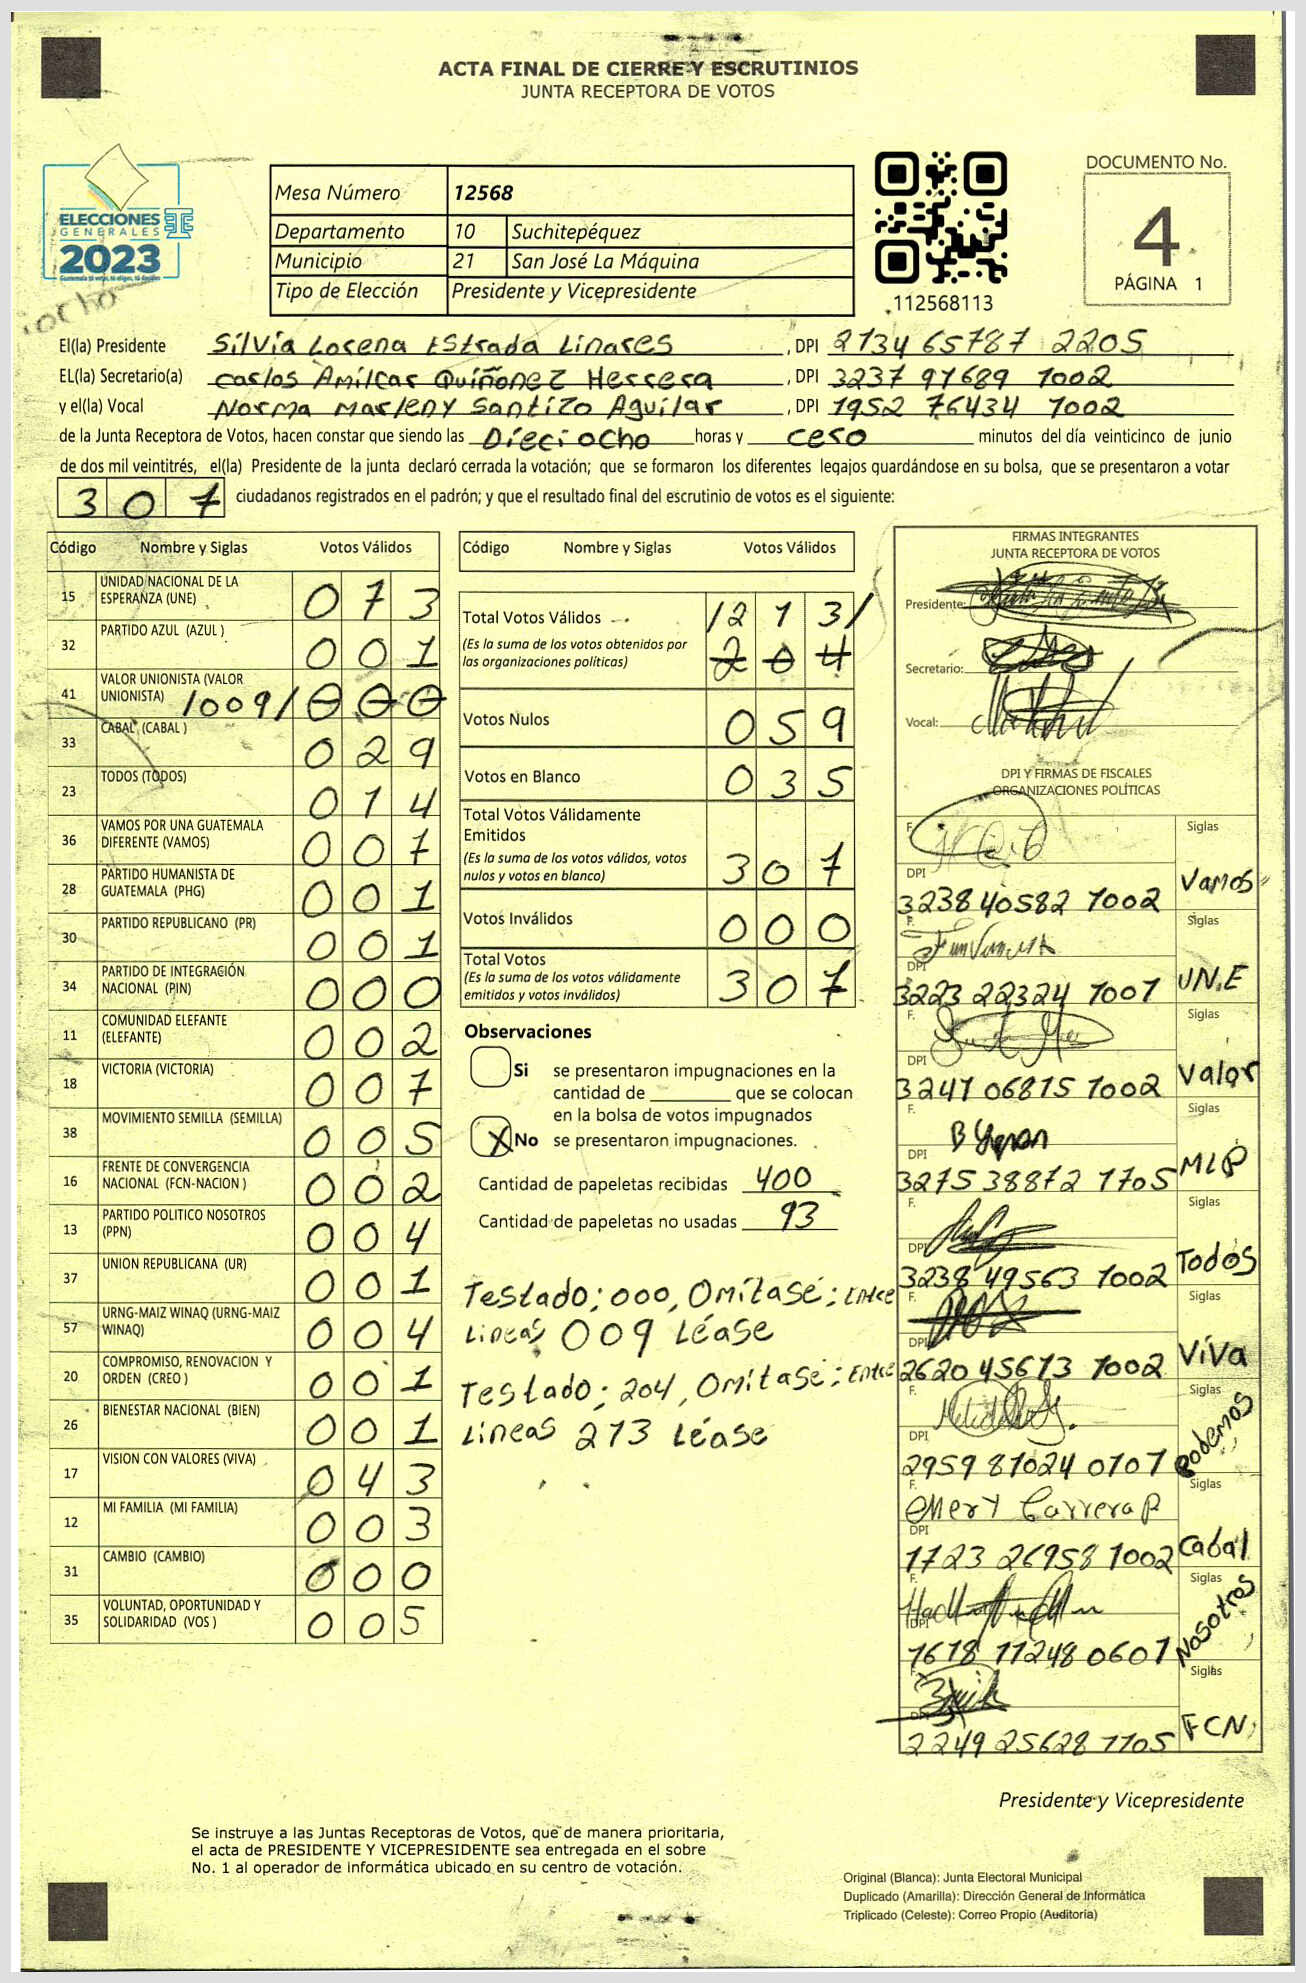 ACTA FINAL DE CIERRE Y ESCRUTINIOS
JUNTA RECEPTORA DE VOTOS
ELECCIONES
GENERALES
2023
iocho
Mesa Número 12568
Departamento 10 Suchitepéquez
Municipio 21 San José La Máquina
Tipo de Elección Presidente y Vicepresidente
112568113
DOCUMENTO No.
4
PÁGINA 1
El(la) Presidente Silvia Lorena Estrada Linares, DPI 2134 65787 2205
EL(la) Secretario(a) Carlos Amilcar Quiñonez Herrera, DPI 3237 97689 1002
y el(la) Vocal Norma Marleny Santizo Aguilar, DPI 1952 76434 1002
de la Junta Receptora de Votos, hacen constar que siendo las Dieciocho horas y cero minutos del día veinticinco de junio
de dos mil veintitrés, el(la) Presidente de la junta declaró cerrada la votación; que se formaron los diferentes legajos guardándose en su bolsa, que se presentaron a votar
307 ciudadanos registrados en el padrón; y que el resultado final del escrutinio de votos es el siguiente:
Código Nombre y Siglas Votos Válidos
15 UNIDAD NACIONAL DE LA ESPERANZA (UNE) 073
32 PARTIDO AZUL (AZUL ) 001
41 VALOR UNIONISTA (VALOR UNIONISTA) /009/ 000
33 CABAL (CABAL ) 029
23 TODOS (TODOS) 014
36 VAMOS POR UNA GUATEMALA DIFERENTE (VAMOS) 007
28 PARTIDO HUMANISTA DE GUATEMALA (PHG) 001
30 PARTIDO REPUBLICANO (PR) 001
34 PARTIDO DE INTEGRACIÓN NACIONAL (PIN) 000
11 COMUNIDAD ELEFANTE (ELEFANTE) 002
18 VICTORIA (VICTORIA) 007
38 MOVIMIENTO SEMILLA (SEMILLA) 005
16 FRENTE DE CONVERGENCIA NACIONAL (FCN-NACION ) 002
13 PARTIDO POLITICO NOSOTROS (PPN) 004
37 UNION REPUBLICANA (UR) 001
57 URNG-MAIZ WINAQ (URNG-MAIZ WINAQ) 004
20 COMPROMISO, RENOVACION Y ORDEN (CREO ) 001
26 BIENESTAR NACIONAL (BIEN) 001
17 VISION CON VALORES (VIVA) 043
12 MI FAMILIA (MI FAMILIA) 003
31 CAMBIO (CAMBIO) 000
35 VOLUNTAD, OPORTUNIDAD Y SOLIDARIDAD (VOS ) 005
Código Nombre y Siglas Votos Válidos
Total Votos Válidos /213/
(Es la suma de los votos obtenidos por las organizaciones políticas) 204
Votos Nulos 059
Votos en Blanco 035
Total Votos Válidamente Emitidos
(Es la suma de los votos válidos, votos nulos y votos en blanco) 307
Votos Inválidos 000
Total Votos
(Es la suma de los votos válidamente emitidos y votos inválidos) 307
Observaciones
Si se presentaron impugnaciones en la
cantidad de ________ que se colocan
en la bolsa de votos impugnados
X No se presentaron impugnaciones.
Cantidad de papeletas recibidas 400
Cantidad de papeletas no usadas 93
Testado: 000, Omitase: Entre
Lineas 009 Léase
Testado: 204, Omitase: Entre
Lineas 213 Léase
FIRMAS INTEGRANTES
JUNTA RECEPTORA DE VOTOS
Presidente:
Secretario:
Vocal:
DPI Y FIRMAS DE FISCALES
ORGANIZACIONES POLÍTICAS
F. Siglas
DPI 3238 40582 1002 Vamos
F. Siglas
DPI 3223 22324 1001 UN.E
F. Siglas
DPI 3241 06815 1002 Valor
F. Siglas
DPI 3275 38872 1705 MLP
F. Siglas
DPI 3238 49563 1002 Todos
F. Siglas
DPI 2620 45673 1002 Viva
F. Siglas
DPI 2959 81024 0101 Podemos
F. Siglas
DPI 1723 26958 1002 Cabal
F. Siglas
DPI 1618 11248 0601 Nosotros
F. Siglas
DPI 2249 25628 1105 FCN
Presidente y Vicepresidente
Se instruye a las Juntas Receptoras de Votos, que de manera prioritaria,
el acta de PRESIDENTE Y VICEPRESIDENTE sea entregada en el sobre
No. 1 al operador de informática ubicado en su centro de votación.
Original (Blanca): Junta Electoral Municipal
Duplicado (Amarilla): Dirección General de Informática
Triplicado (Celeste): Correo Propio (Auditoria)